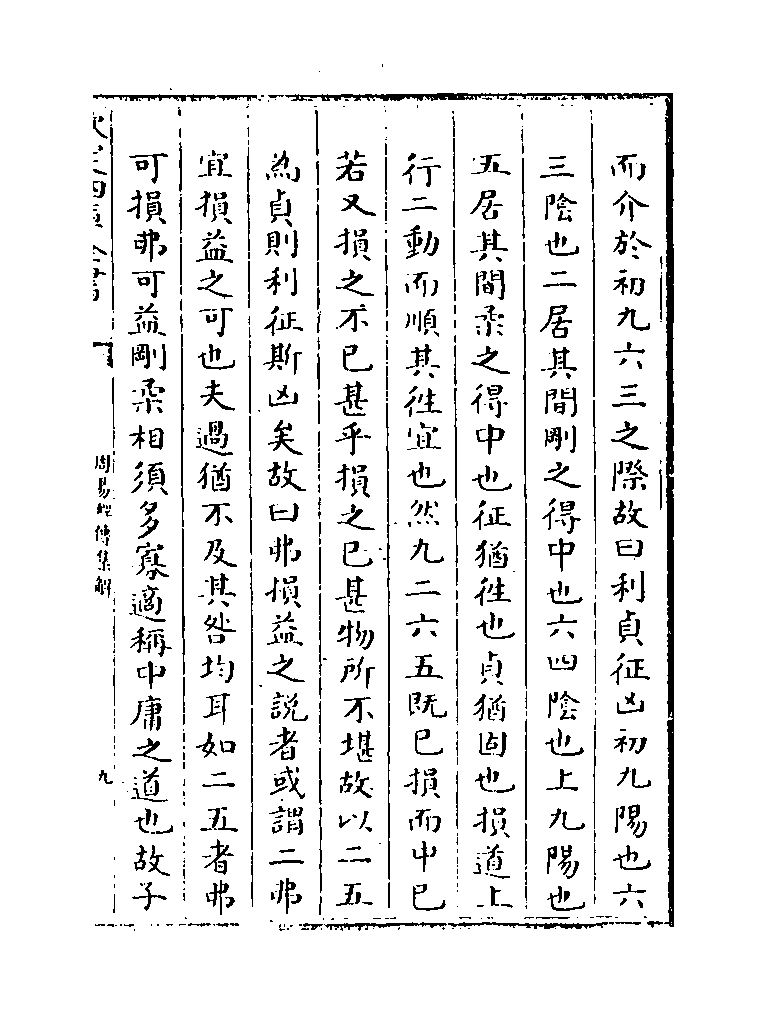 而介於初九六三之際故曰利貞征凶初九陽也六
三陰也二居其間剛之得中也六四陰也上九陽也
五居其間柔之得中也征猶徃也貞猶固也損道上
行二動而順其徃宜也然九二六五既已損而中已
若又損之不已甚乎損之已甚物所不堪故以二五
為貞則利征斯凶矣故曰弗損益之說者或謂二弗
宜損益之可也夫過猶不及其咎均耳如二五者弗
可損弗可益剛柔相須多寡適稱中庸之道也故子
欽定四庫全書
周易經傳集解
九